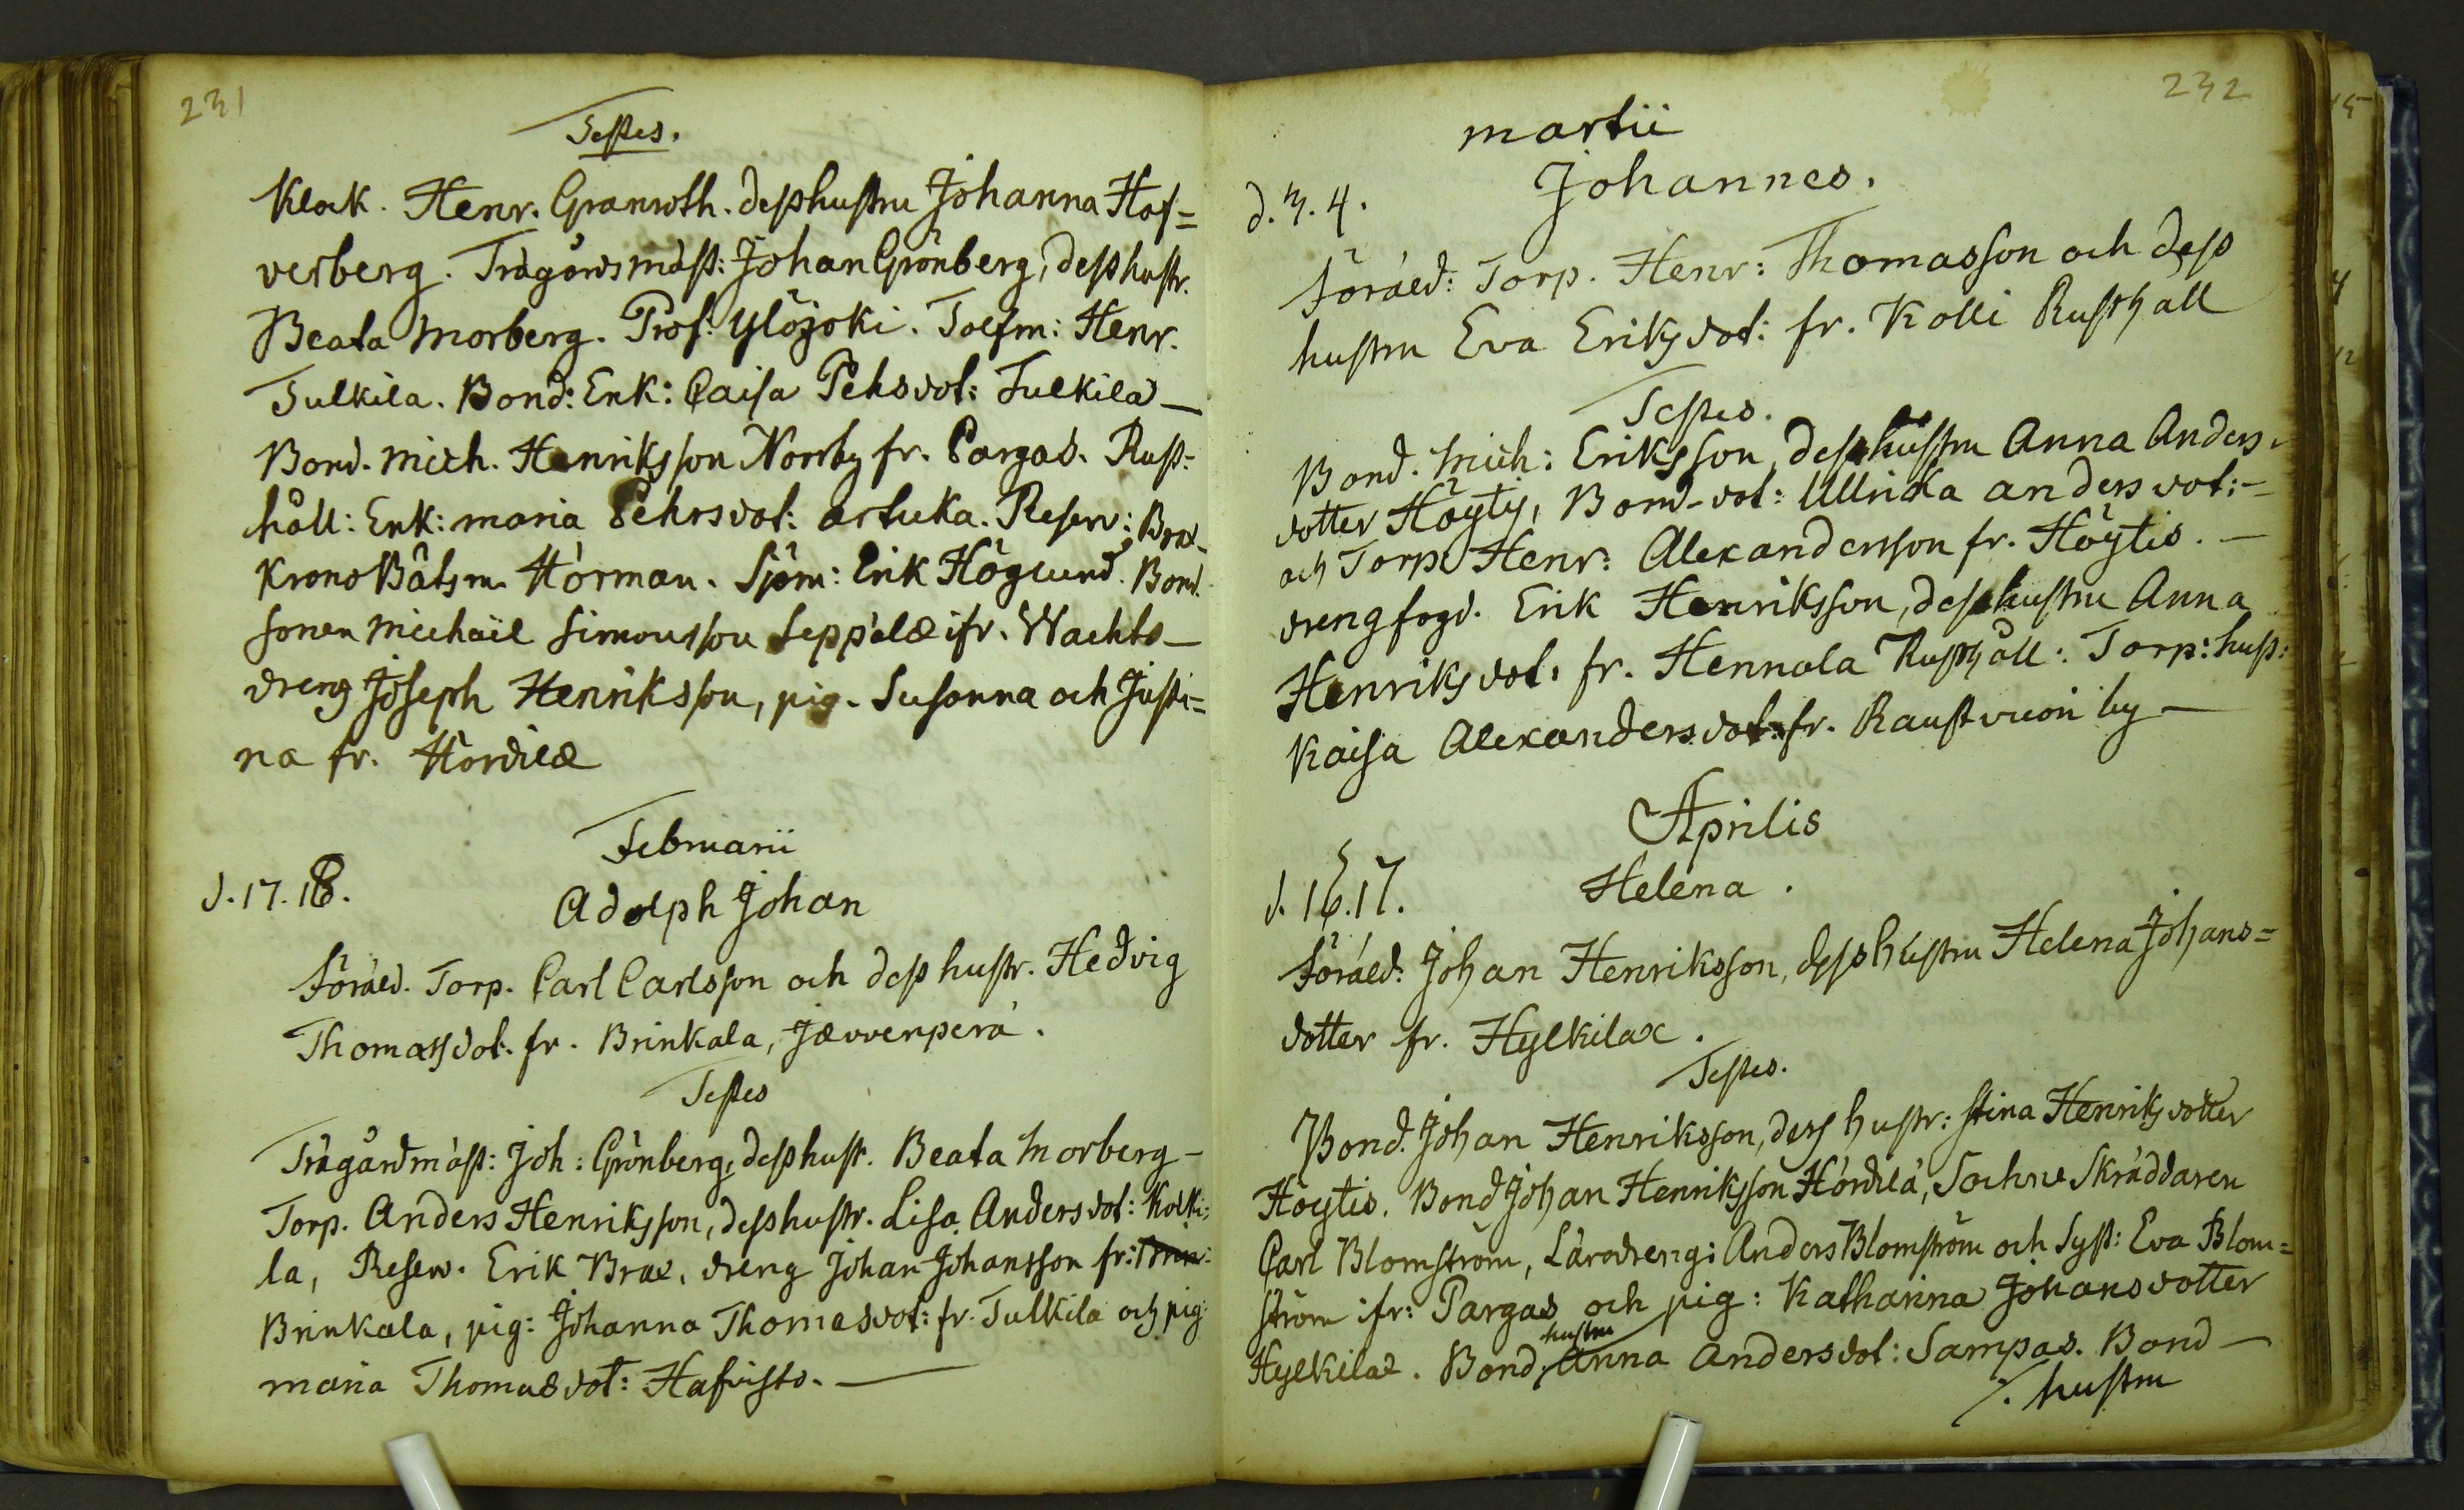 231
Testes.
Klock. Henr. Granroth. dess hustru Johanna Haf=
verberg. Trägårdsmäst: Johan Grönberg, dess hustr.
Beata Morberg. Prof: Ylöjoki. Tolfm: Henr.
Tulkila. Bond: Enk: Caisa Pehrsdot: Tulkila —
Bond. Mich. Henriksson Norrby fr. Pargas. Rust-
håll: Enk: Maria Pehrsdot: Artuka. Reserv: Brax-
Krono Båtsm. Hörman. Sjöm: Erik Höglund. Bond.
sonen Michaël Simonsson Seppälæ ifr. Wachto—
dreng Joseph Henriksson, pig. Susanna och Justi=
na fr. Hördilæ
Februarii
d. 17. 18.
Adolph Johan
Föräld. Torp. Carl Carlsson och dess hustr. Hedvig
Thomasdot. fr. Brinkala, Jævvenperä.
Testes
Trägårdmäst: Joh: Grönberg, dess hust. Beata Morberg—
Torp. Anders Henriksson, dess hustr. Lisa Andersdot: Koski:
la, Reserv. Erik Brax, dreng Johan Johansson fr:
Brinkala, pig: Johanna Thomasdot: fr. Tulkila och pig:
Maria Thomasdot: Hafvisto. —
232
Martii
d. 3. 4.
Johannes.
Föräld: Torp. Henr: Thomasson och dess
hustru Eva Eriksdot: fr. Kolli Rusthåll
Testes.
Bond. Mich: Eriksson, dess hustru Anna Anders-
dotter Höytis, Bond-dot: Ullrika Andersdot: —
och Torp. Henr: Alexandersson fr. Höytis. —
drengfogd. Erik Henriksson, dess hustru Anna
Henriksdot. fr. Hennala Rusthåll: Torp: hust:
Kaisa Alexandersdot: fr. Raustvuori by —
Aprilis
d. 16. 17.
Helena.
Föräld: Johan Henriksson, dess hustru Helena Johans=
dotter fr. Hylkilax.
Testes.
Bond. Johan Henriksson, dess hustr: Stina Henriksdotter
Höytis. Bond Johan Henriksson Hördilä, Sockne Skräddaren
Carl Blomström, Lärodreng: Anders Blomström och Syst: Eva Blom=
ström ifr: Pargas och pig: Katharina Johansdotter
hustru
Hylkilax. Bond, Anna Andersdot: Sampas. Bond —
/. hustru